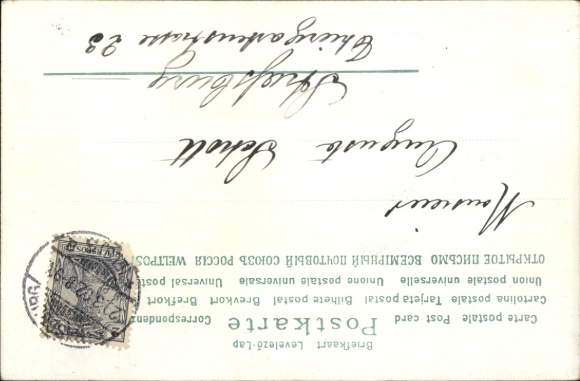 Briefkaart Levelező-Lap
Postkarte
Carte postale Post card Correspondenz
Cartolina postale Tarjeta postal Bilhete postal Brevkort Brefkort
Union postale universelle Unione postale universale Universal postal
ОТКРЫТОЕ ПИСЬМО ВСЕМІРНЫЙ ПОЧТОВЫЙ СОЮЗЪ РОССІЯ WELTPOST
Monsieur
Auguste Schott
Strassburg
Thiergartenstrasse 23